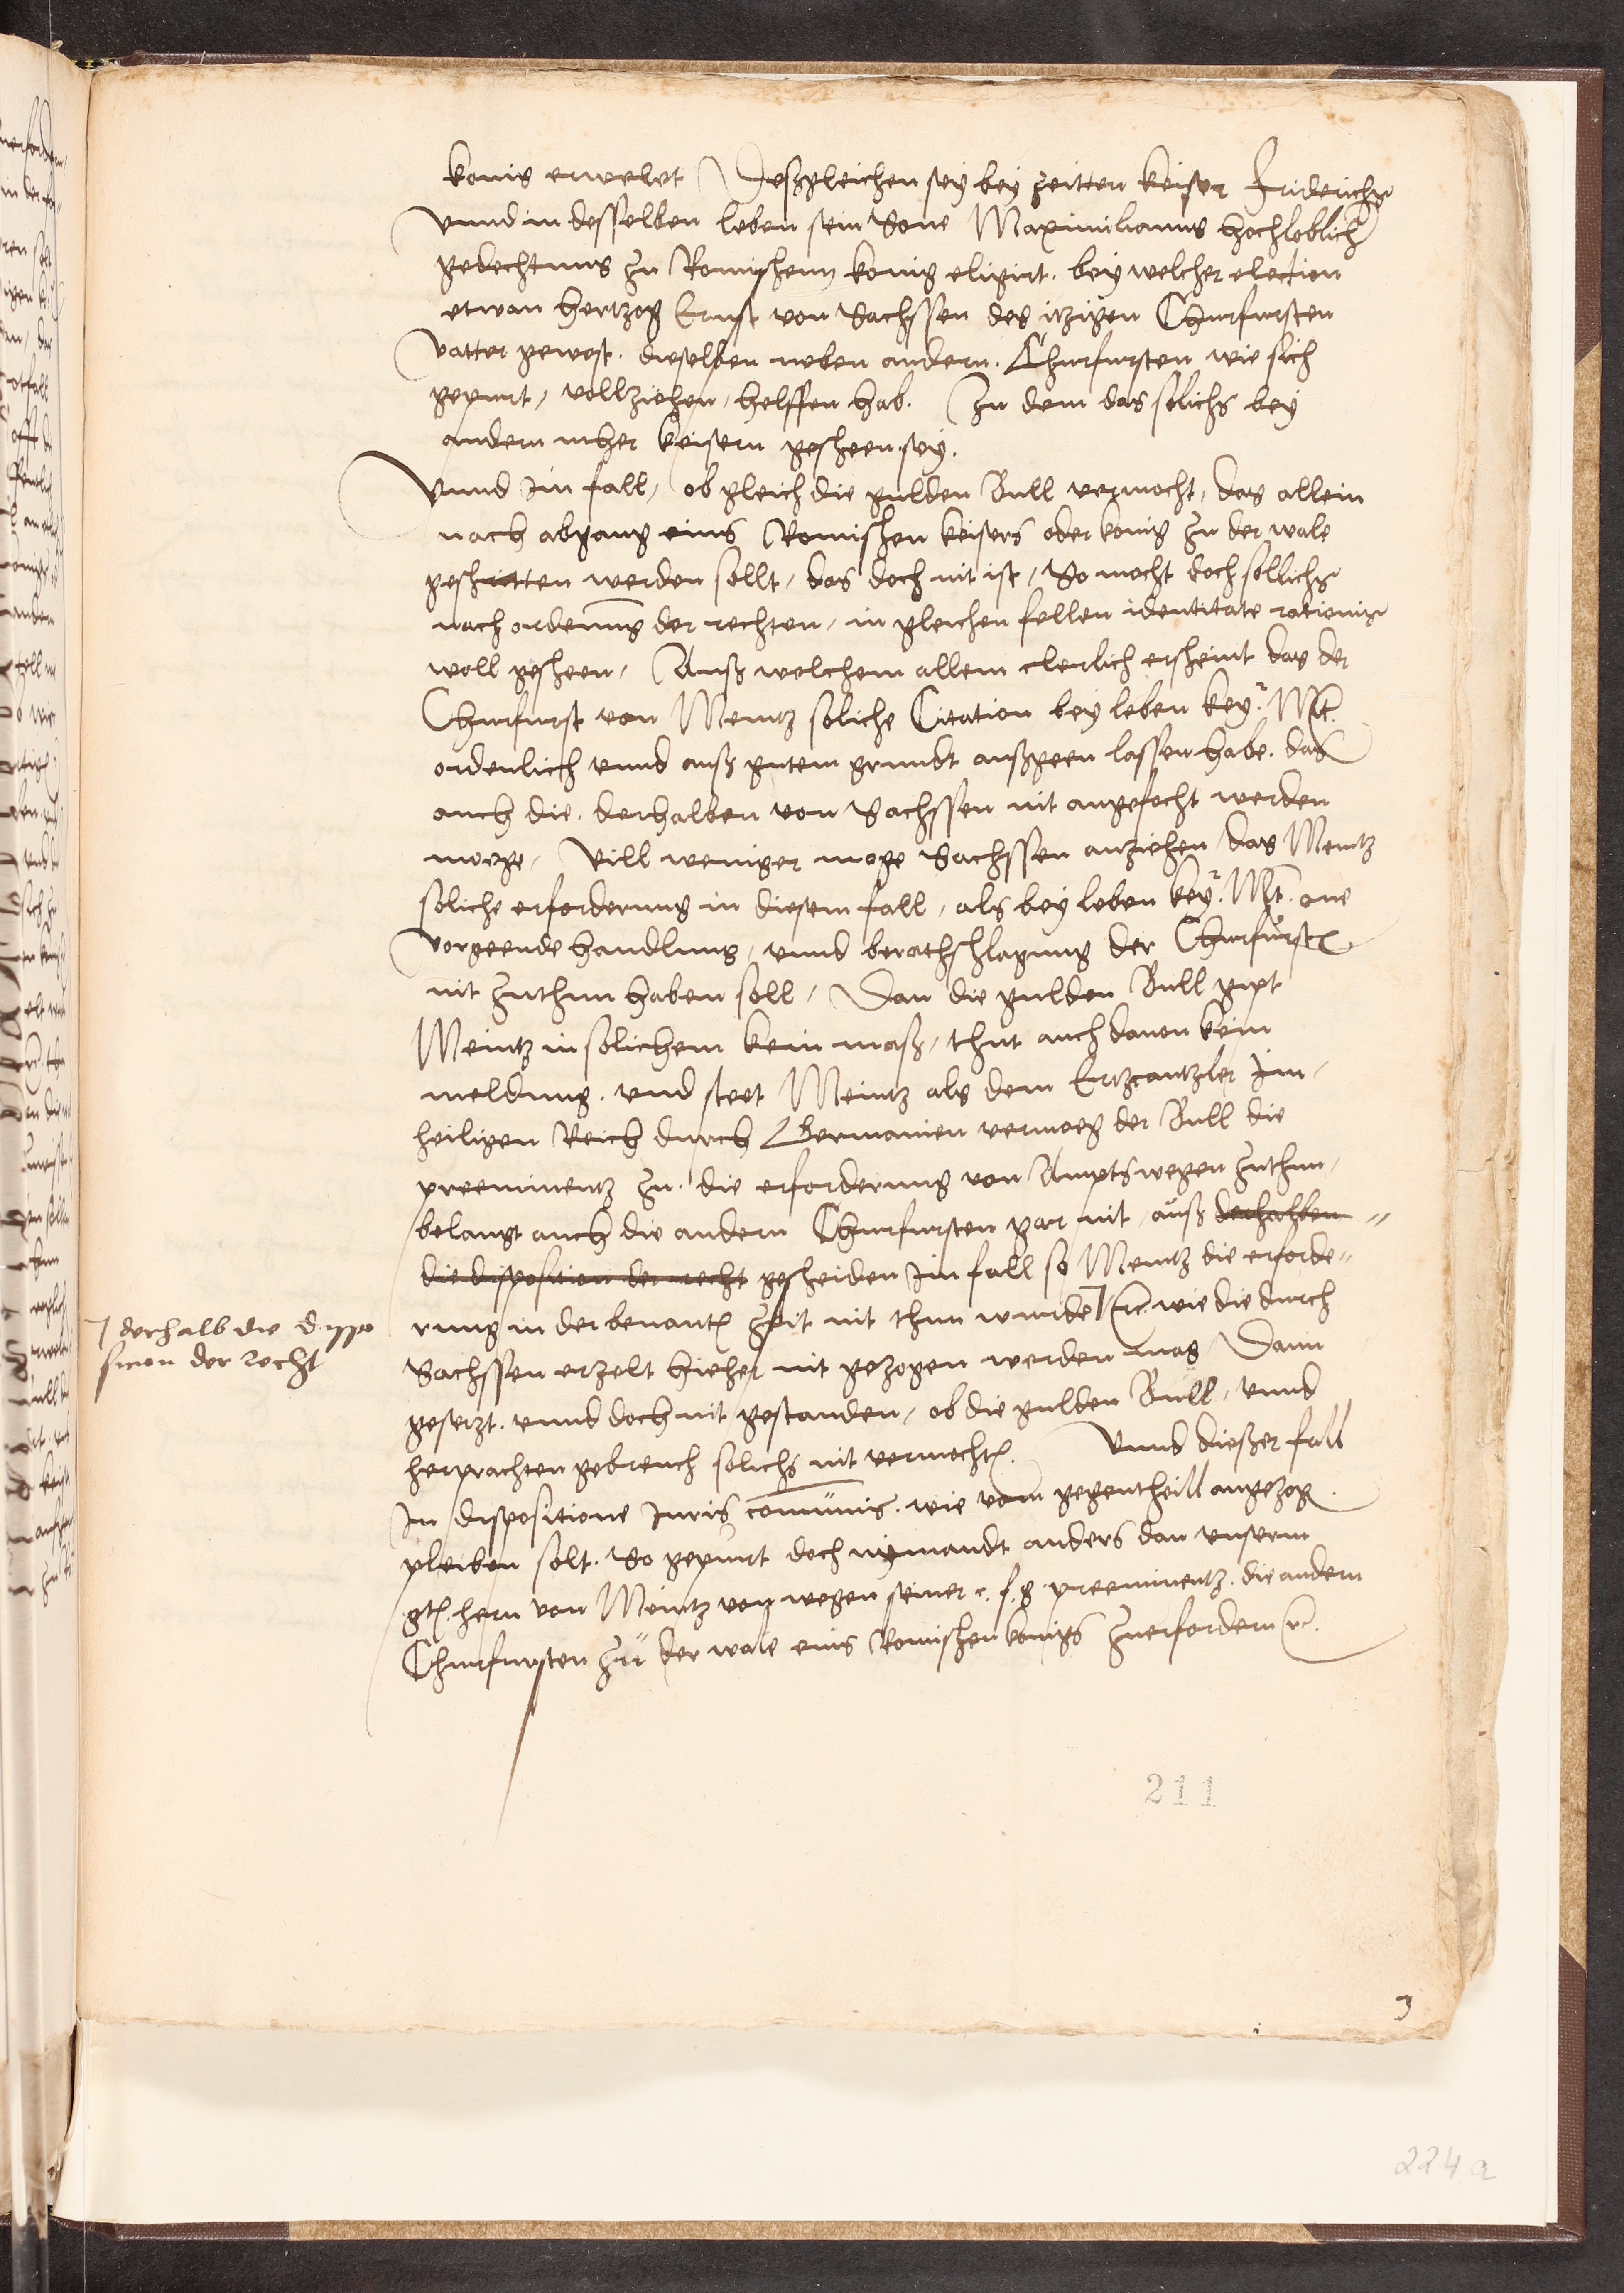 konig erwelet Deßgleichen sey bey zeitten keiser Friderichs
vnnd in desselben leben sein Sone Maximilianus hochloblich
gedechtnus zu Romischenn konig eligirt. bey welcher election
etwan hertzog Ernst von Sachssen des itzigen Churfursten
vatter gewest. dieselben neben andern. Churfursten wie sich
gepurt, vollziehen, helffen hab. Zu dem das solichs bey
andern mher keisern gescheen sey.
Vnnd im fall, ob gleich die gulden Bull vermocht, das allein
nach abgang eins Romischen keisers oder konig zu der wale
geschritten werden sollt, das doch nit ist, So mocht doch sollichs
nach ordenung der rechten, in gleichen fellen identitate rationis
woll gescheen, Auß welchem allem clerlich erscheint das der
Churfurst von Meintz soliche Citation bey leben key.r Mt.
ordenlich vnnd auß gutem grundt außgeen lassen habe. das
auch die. derhalben von Sachssen nit angefocht werden
moege, Vill weniger moge Sachssen anziehen das Meintz
soliche erforderung in diesem fall, als bey leben key.r Mt. one
vorgeende handlung, vnnd berathschlagung der Churfurst
nit zuthun haben soll, Dan die gulden Bull gipt
Meintz in solichem kein maß, thut auch dauon kein
meldung. vnd steet Meintz als dem Ertzcantzler im
heiligen Reich durch Germanien vermoeg der Bull die
preeminentz zu. die erforderung von Ampts wegen zuthun,
belangt auch die andern Churfursten gar nit, auß derhalben
die disposition der recht gescheiden im fall so Meintz die erforde-
rung in der benant zeit nit thun wurde ꝛc. wie die durch
⌉ derhalb die dispo
sicion der recht
Sachssen erzelt hieher nit gezogen werden mag Dann
gesetzt. vnnd doch nit gestanden, ob die gulden Bull, vnnd
herprachten gebreuch solichs nit vermocht. Vnnd dießer fall
In dispositione Juris comunis. wie vom gegentheill angezog
pleiben solt. So gepurt doch nymandt anders dan vnserm
gt. hern von Meintz von wegen seiner c. f. g. preeminentz. die andern
Churfursten zu der wale eins Romischen konigs zuerfordern ꝛc.
211
3
224a